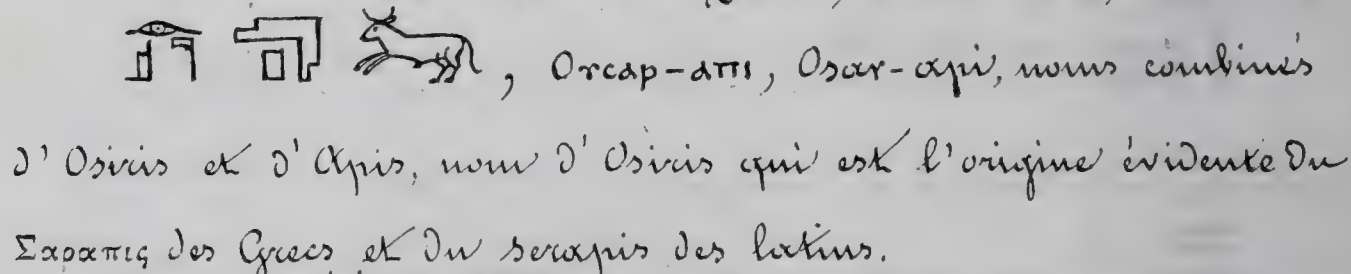 , Orcap-ⲁⲡⲓ, Osar-api, noms combinés
d'Osiris et d'Apis, nom d'Osiris qui est l'origine évidente du
Σαραπις des Grecs et du serapis des latins.